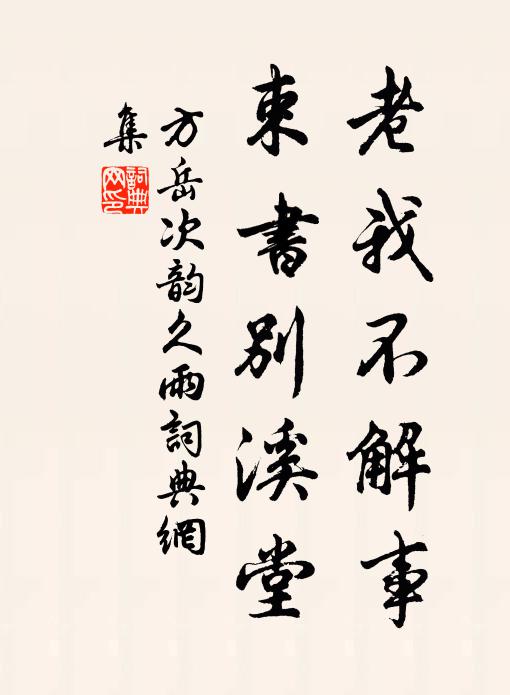 老我不解事
束書別溪堂
方岳次韵久雨詞典網
集
詞典网印